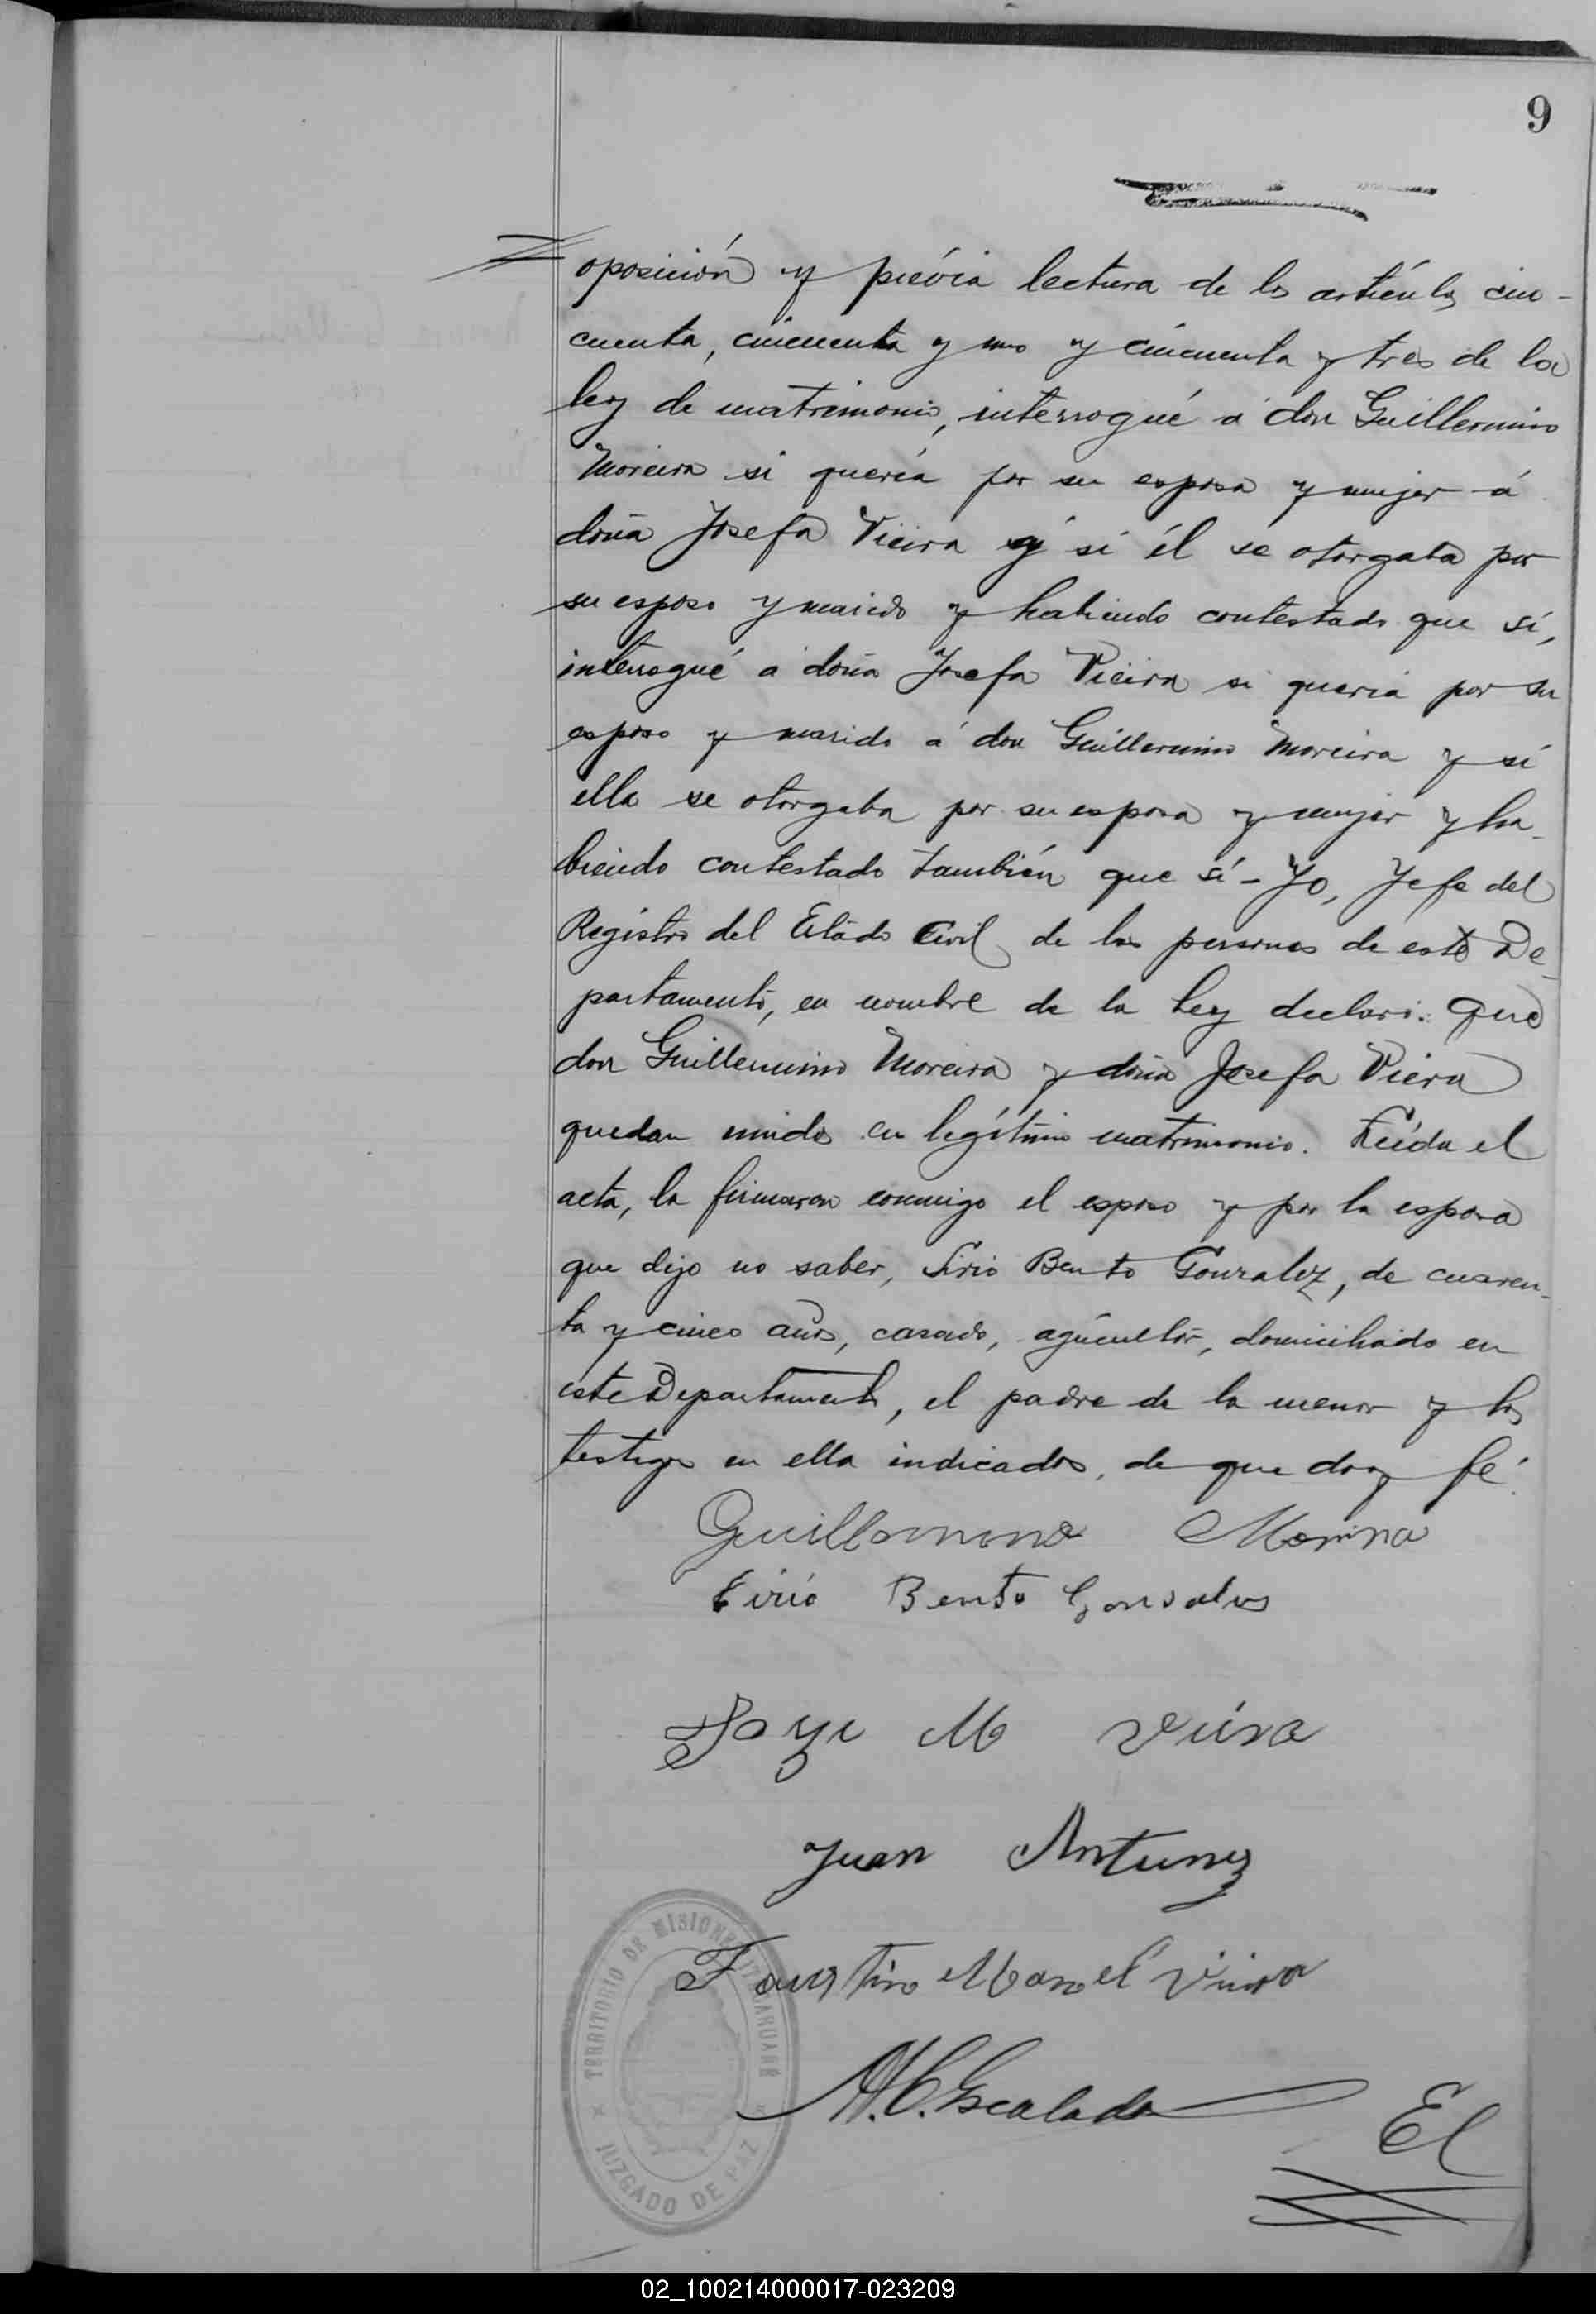 9
oposición y prévia lectura de los artículos cin-
cuenta, cincuenta y uno y cincuenta y tres de la
ley de matrimonio, interrogué a don Guillermino
Moreira si quería por su esposa y mujer á
doña Josefa Vieira y si él se otorgaba por
su esposo y marido y habiendo contestado que sí,
interrogué a doña Josefa Vieira si queria por su
esposo y marido á don Guillermino Moreira y si
ella se otorgaba por su esposa y mujer y ha-
biendo contestado también que sí - Yo, Jefe del
Registro del Estado Civil de las personas de este De-
partamento, en nombre de la Ley declaro: Que
don Guillermino Moreira y doña Josefa Viera
quedan unidos en legítimo matrimonio. Leída el
acta, la firmaron conmigo el esposo y por la esposa
que dijo no saber, Sirio Bento Gonzalez, de cuaren-
ta y cinco años, casado, agricultor, domiciliado en
este Departamento, el padre de la menor y los
testigos en ella indicados, de que doy fé.
Guillermino Morina
Sirio Bento Gonsalves
M Viera
Juan Antunez
Faustino Manoel Vieira
A. C. Escalada
El
TERRITORIO DE MISIONES ITACARUARÉ
JUZGADO DE PAZ
02_100214000017-023209